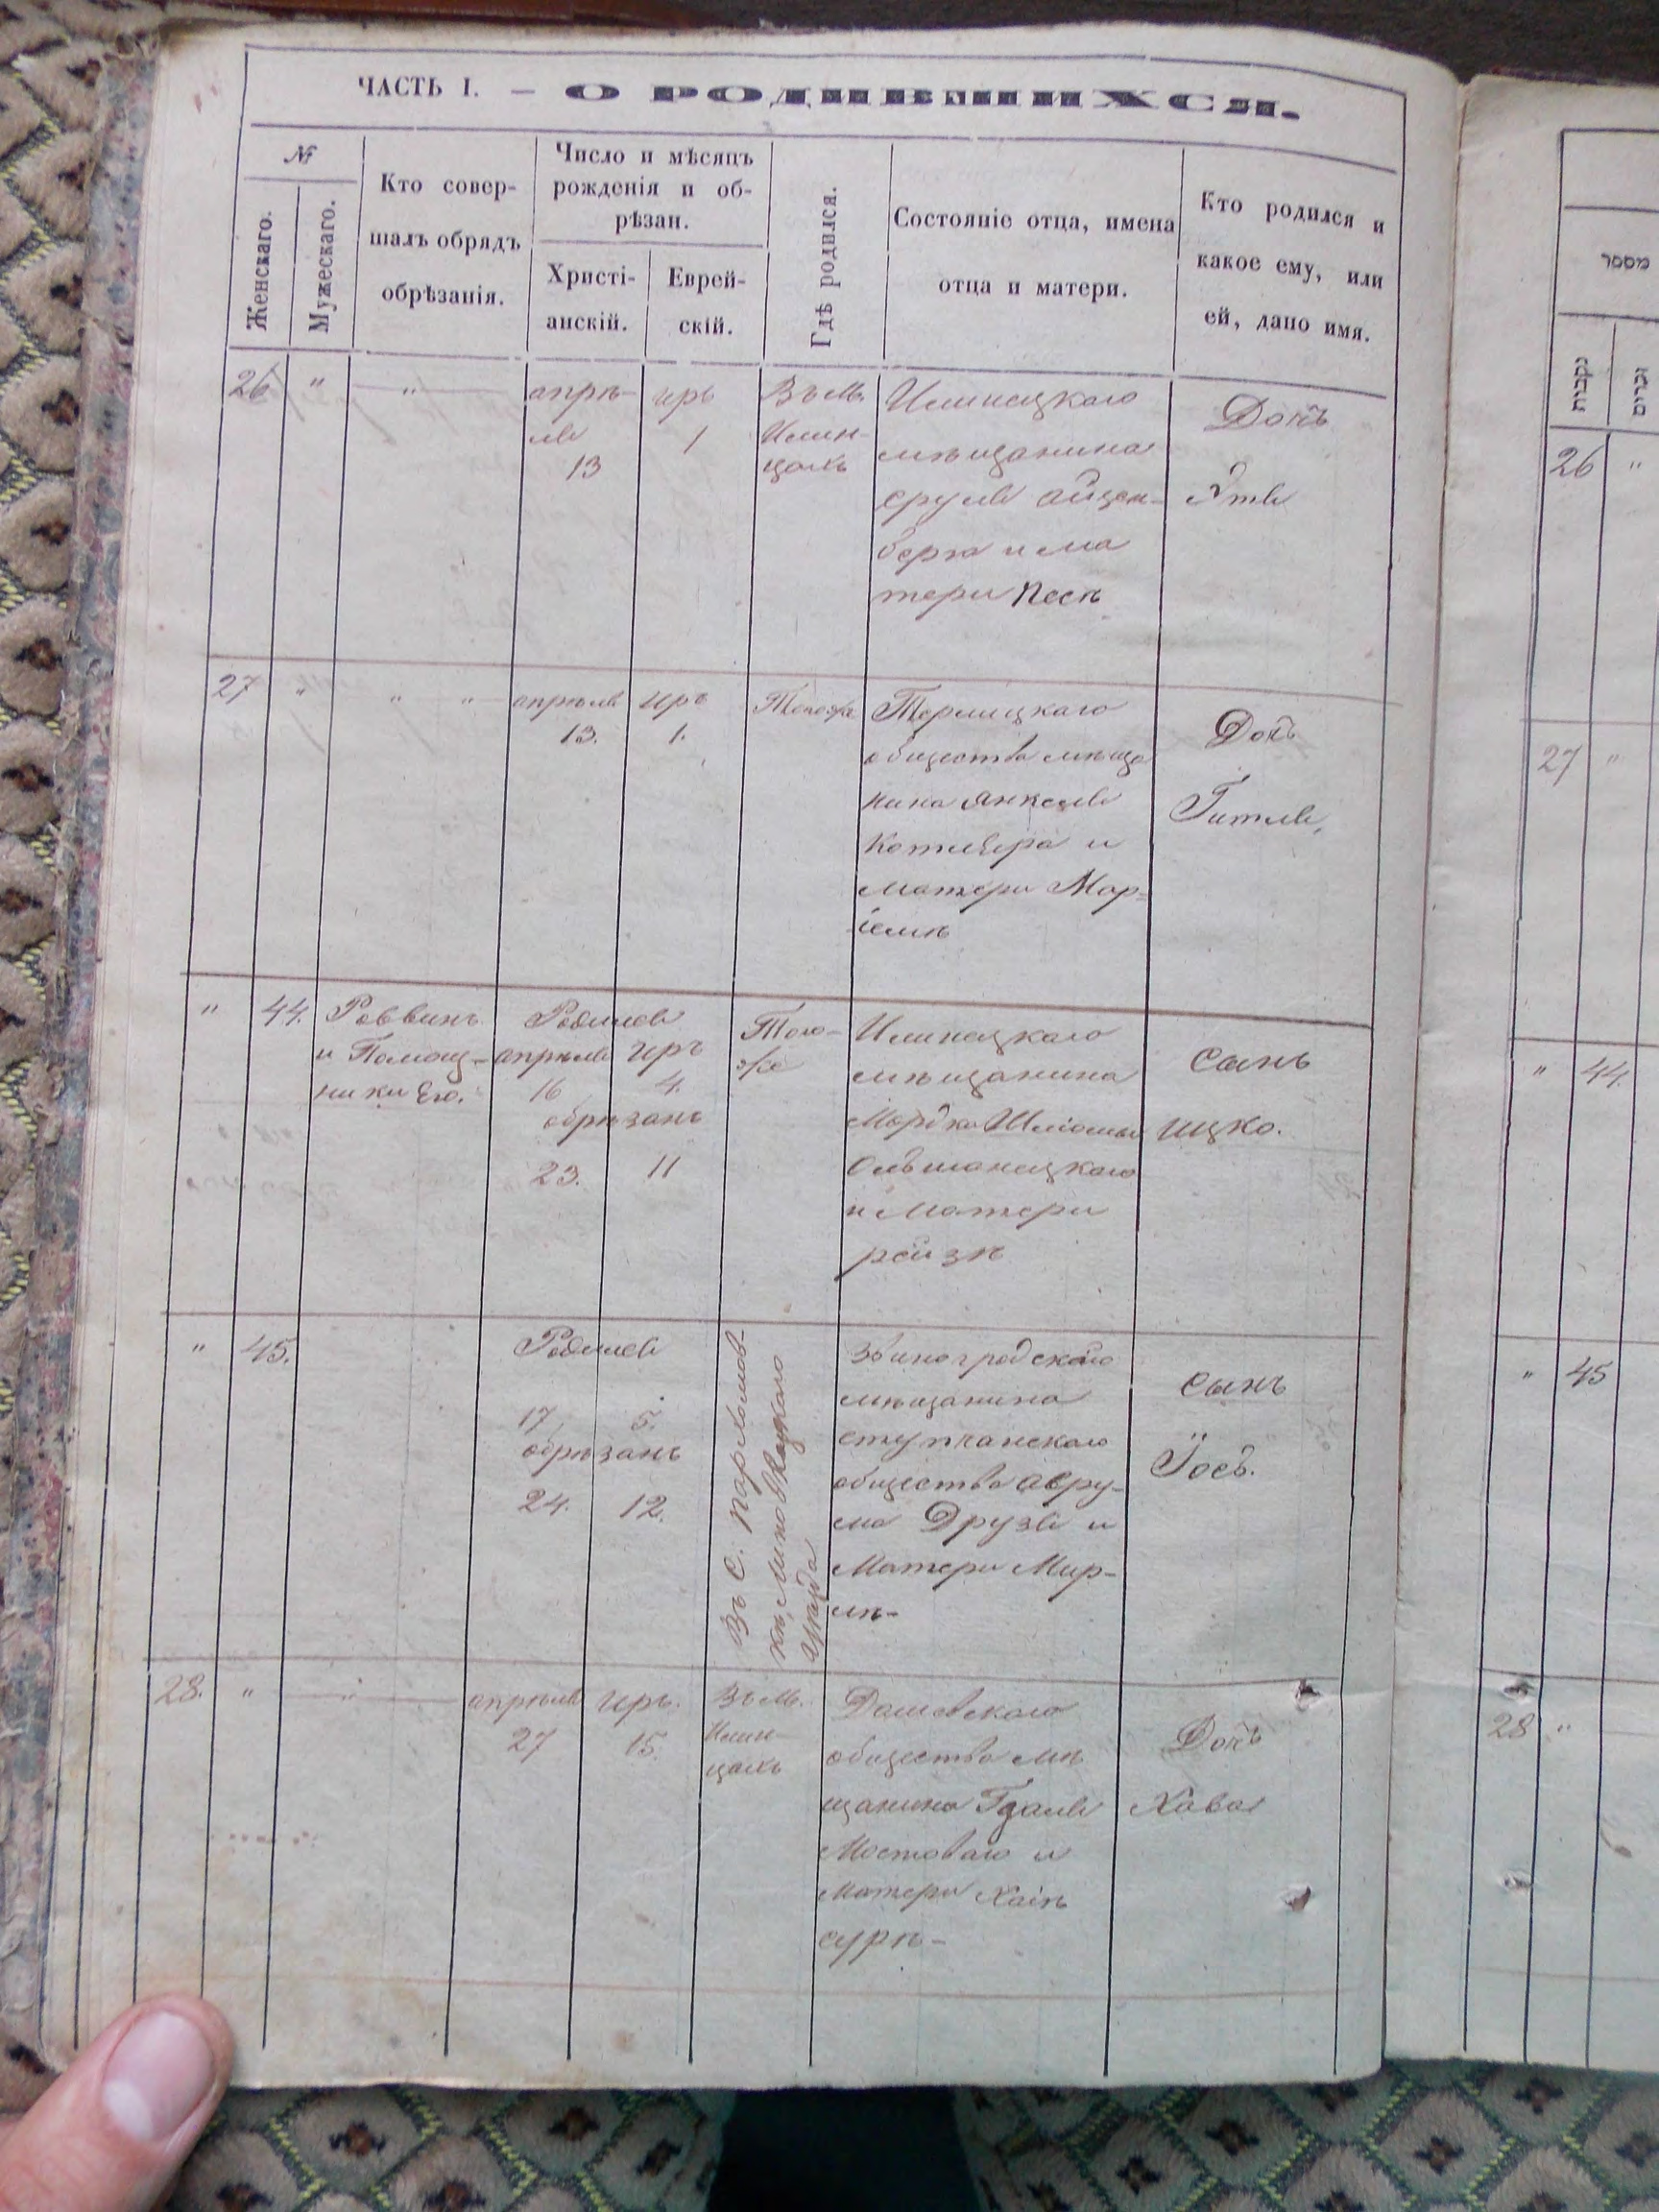 ЧАСТЬ I. — О РОДИВШИХСЯ.
№
Женскаго.
Мужескаго.
Кто совер-
шалъ обрядъ
обрѣзанія.
Число и мѣсяцъ
рожденія и об-
рѣзан.
Христі-
анскій.
Еврей-
скій.
Гдѣ родился.
Состояніе отца, имена
отца и матери.
Кто родился и
какое ему, или
ей, дано имя.
26 " "
апрѣ-
ля
13
иръ
1
Въ м.
Илин-
цахъ
Илинецкаго
мѣщанина
сруля айзен-
берга и ма
тери Песѣ
Дочь
27 " " "
апрѣля
13.
иръ
1.
Тогожъ
общества мѣща
нина Янкеля
Котляра и
матери Мар-
іемѣ
Дочь
Гитля,
" 44.
Раввинъ
и Помощ-
ники Его.
Родился
апрѣля иръ
16 4.
обрѣзанъ
23. 11
Того-
же
Илинецкаго
мѣщанина
Мордка Шліомы
Ольшанецкаго
и Матери
рейзѣ
Сынъ
ицко.
" 45.
Родился
17, 5.
обрѣзанъ
24. 12.
Въ С. Пархомов-
кѣ, Липовецкаго
уѣзда
Звиногродскаго
мѣщанина
общества авру-
ма Друзя и
Матери Мир-
лѣ-
Сынъ
Іосъ.
28. " "
апрѣля
27
иръ.
15.
Въ м.
Илин-
цахъ
Дашевскаго
общества мѣ
щанина Гдаля
Мостоваго и
Матери Хаіѣ
сурѣ-
Дочь
Хава
מספר
נקבות
זכרים
26 "
27 "
" 44.
" 45
28 "